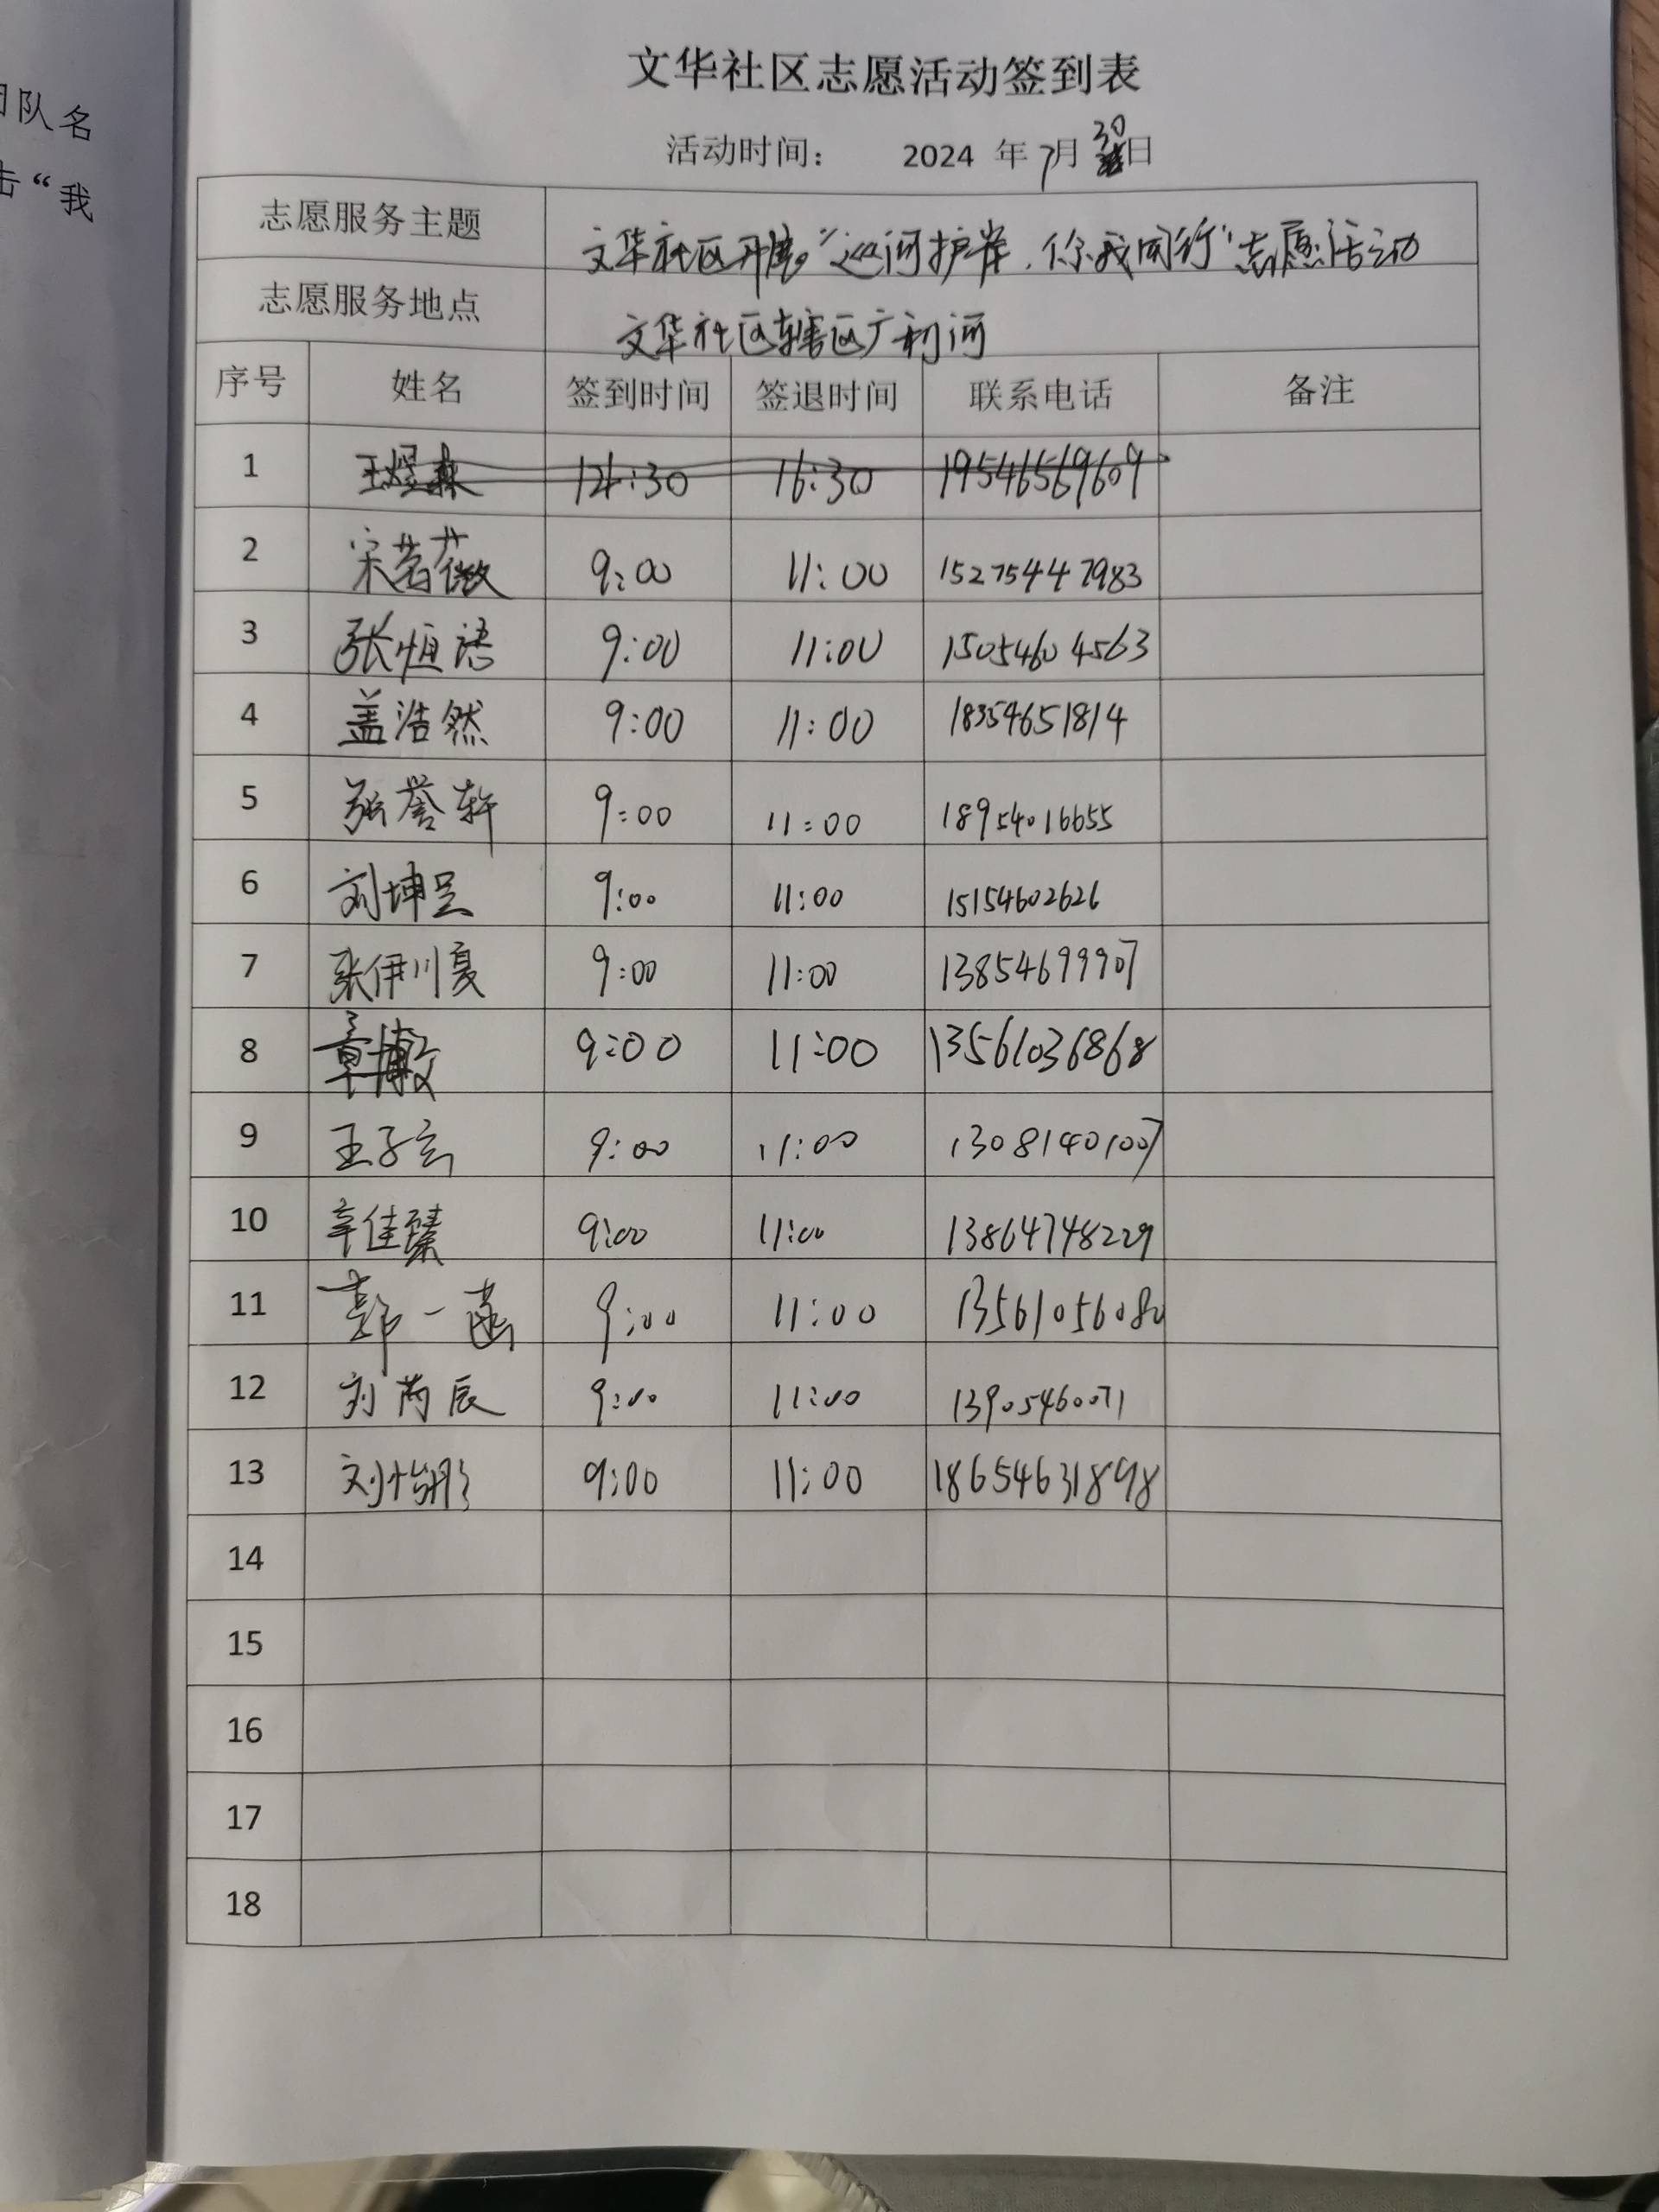 团队名
击“我
文华社区志愿活动签到表
活动时间： 2024 年 7月 30日
志愿服务主题 文华社区开展“巡河护岸，你我同行”志愿活动
志愿服务地点 文华社区辖区广利河
序号 姓名 签到时间 签退时间 联系电话 备注
1 王煜森 14:30 16:30 19546569609
2 宋茗薇 9:00 11:00 15275447983
3 张恒语 9:00 11:00 15054604563
4 盖浩然 9:00 11:00 18354651814
5 张誉轩 9:00 11:00 18954016655
6 刘坤呈 9:00 11:00 15154602626
7 张伊川夏 9:00 11:00 13854699907
8 章博文 9:00 11:00 13561036868
9 王子玄 9:00 11:00 13081401007
10 辛佳臻 9:00 11:00 13864748229
11 郭一菡 9:00 11:00 13561056080
12 刘芮辰 9:00 11:00 13905460071
13 刘怡彤 9:00 11:00 18654631898
14
15
16
17
18